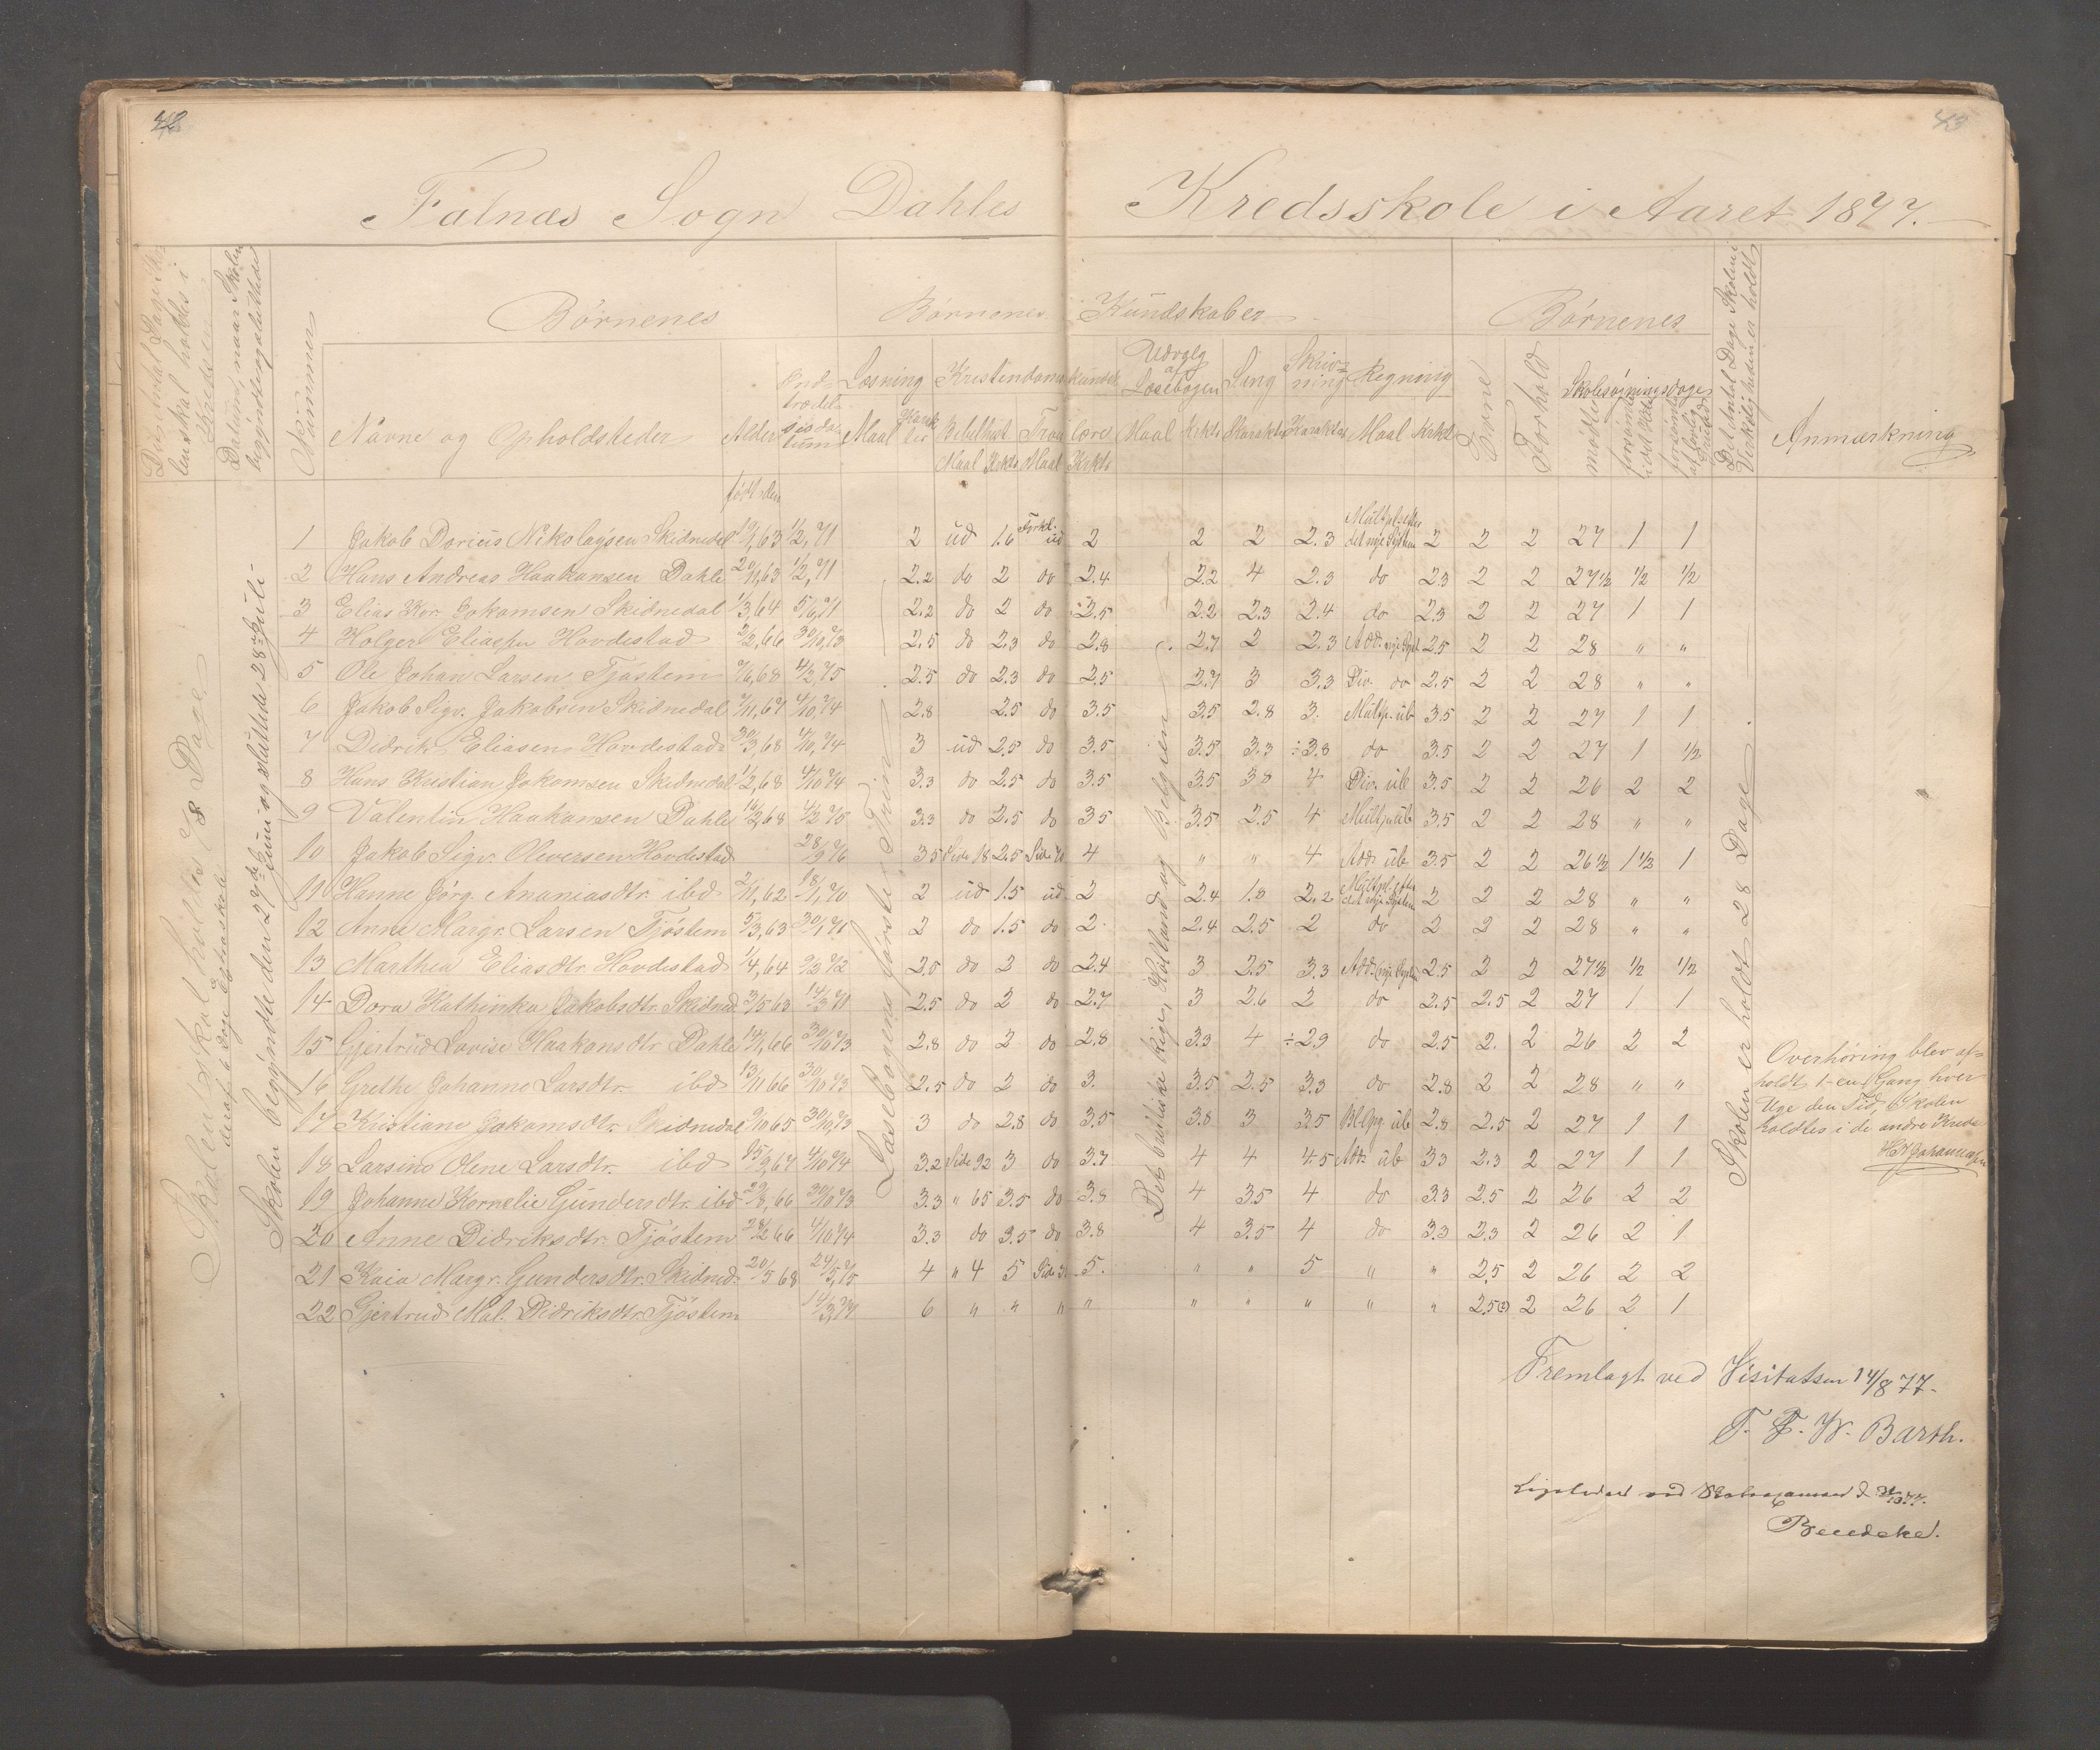 42
43
Falnæs Sogn Dahles Kredsskole i Aaret 1877.
Det Antal Dage Sko-
len skal holdes i
Kredsen
Datum, naar Skolen
begyndes og sluttede
Nummer
Børnenes
Børnenes Kundskaber
Børnenes
Det Antal Dage Skolen i
Virkeligheden er holdt
Anmærkning
Navne og Opholdssteder
Alder
Ind-
trædel-
sis da-
tum
Læsning
Kristendomskundsk.
Udvalg
af
Læsebogen
Sang
Skriv-
ning
Regning
Evne
Forhold
Skolesøgningsdage
Maal
Karak
ter
Bibelhist.
Troes lære
Maal Krkt. Karakter Karakter Maal Krkt.
mødte
forsømte
i det Hele
forsømte
af lovlig
Grund
Maal Krkt. Maal Krkt.
født den
Skolen skal holdes 28 Dage
deraf 6 Dage Ethaskole
Skolen begyndte den 27de Juni og sluttede 28de Juli
Læsebogens første Trin
Det brittiske Rige, Holland og Belgien
Skolen er holdt 28 Dage
1 Jakob Dorius Nikolaysen Skidnedal 19/1,63 1/2,71 2 ud 1.6 Forkl. ud 2 2 2 2.3 Multpl. efter det nye System 2 2 2 27 1 1
2 Hans Andreas Haakonsen Dahle 20/11,63 1/2,71 2.2 do 2 do 2.4 2.2 4 2.3 do 2.3 2 2 27½ ½ ½
3 Elias Kor. Jokamsen Skidnedal 1/3,64 5/6,71 2.2 do 2 do 2.5 2.2 2.3 2.4 do 2.3 2 2 27 1 1
4 Holger Eliassen Hovdestad 2/2,66 30/10,73 2.5 do 2.3 do 2.8 2.7 2 2.3 Add. nye Syst. 2.5 2 2 28 " "
5 Ole Johan Larsen Tjøstem 7/6,68 4/2,75 2.5 do 2.3 do 2.5 2.7 3 3.3 Div. do 2.5 2 2 28 " "
6 Jakob Sigv. Jakobsen Skidnedal 7/11,67 4/10,74 2.8 2.5 do 3.5 3.5 2.8 3. Multp. ub 3.5 2 2 27 1 1
7 Didrik Eliasen Hovdestad 30/3,68 4/10,74 3 ud 2.5 do 3.5 3.5 3.3 ÷3.8 do 3.5 2 2 27 1 ½
8 Hans Kristian Jokomsen Skidnedal 1/2,68 4/10 74 3.3 do 2.5 do 3.5 3.5 3.8 4 Div. ub 3.5 2 2 26 2 2
9 Valentin Haakonsen Dahle 14/2,68 4/2 75 3.3 do 2.5 do 3.5 3.5 2.5 4 Multp. ub 3.5 2 2 28 " "
10 Jakob Sigv. Oliversen Hovdestad 28/9 76 3.5 Side 18 2.5 Side 70 4 " " 4 Add. ub 3.5 2 2 26½ 1½ 1
11 Hanne Jørg. Ananiasdtr. ibd 2/11,62 18/1,70 2 ud 1.5 ud 2 2.4 1.8 2.2 Multpl. efter det nye System 2 2 2 28 " "
12 Anne Margr. Larsen Tjøstem 5/3,63 30/1,71 2 do 1.5 do 2 2.4 2.5 2 do 2 2 2 28 " "
13 Marthea Eliasdtr. Hovdestad 1/4,64 9/2 72 2.5 do 2 do 2.4 3 2.5 3.3 Add. nye System 2.5 2 2 27½ ½ ½
14 Dora Kathinka Jakobsdtr. Skidned. 3/5 63 14/3 71 2.5 do 2 do 2.7 3 2.6 2 do 2.5 2.5 2 27 1 1
15 Gjertrud Lovise Haakonsdtr Dahle 14/1,66 30/10 73 2.8 do 2 do 2.8 3.3 4 ÷2.9 do 2.5 2. 2 26 2 2
16 Grethe Johanne Larsdtr. ibd 13/11 66 30/10 73 2.5 do 2 do 3. 3.5 2.5 3.3 do 2.8 2 2 28 " "
17 Kristiane Jokomsdtr. Skidnedal 9/10 65 30/10,73 3 do 2.8 do 3.5 3.8 3 3.5 ub 2.8 2.5 2 27 1 1
18 Larsine Olene Larsdtr. ibd 25/9,67 4/10 74 3.2 Side 92 3 do 3.7 4 4 4.5 Add. ub 3.3 2.3 2 27 1 1
19 Johanne Kornelie Gundersdtr. ibd 29/8,66 30/10 73 3.3 " 65 3.5 do 3.8 4 3.5 4 do 3.3 2.5 2 26 2 2
20 Anne Didriksdtr. Tjøstem 28/2 66 4/10 74 3.3 do 3.5 do 3.8 4 3.5 4 do 3.3 2.3 2 26 2 1
21 Kaia Margr. Gundersdtr. Skidned. 20/5 68 24/5,75 4 " 4 5 Side 5. " " 5 " " 2.5 2 26 2 2
22 Gjertrud Mal. Didriksdtr. Tjøstem 14/3,77 6 " " " " " " " " " 2.5(?) 2 26 2 1
Overhøring blev af-
holdt 1-en Gang hver
Uge den Tid, Skolen
holdtes i de andre Kredse
Fremlagt ved Visitatsen 14/8 77.
T. F. W. Barth.
Ligeledes ved